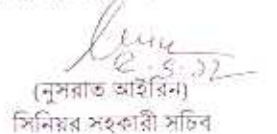 (নুসরাত আইরিন)
সিনিয়র সহকারী সচিব